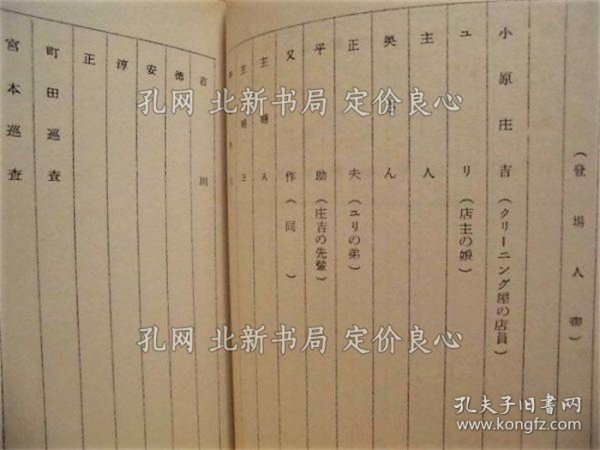 (登場人物)
小原庄吉(クリーニング屋の店員)
ユリ(店主の娘)
主人
奥さん
正夫(ユリの弟)
平助(庄吉の先輩)
又作(同)
主婦A
主婦B
若
徳
安
淳
正
町田巡査
宮本巡査
孔网 北新书局 定价良心
孔网 北新书局 定价良心
孔夫子旧书网
kongfz.com